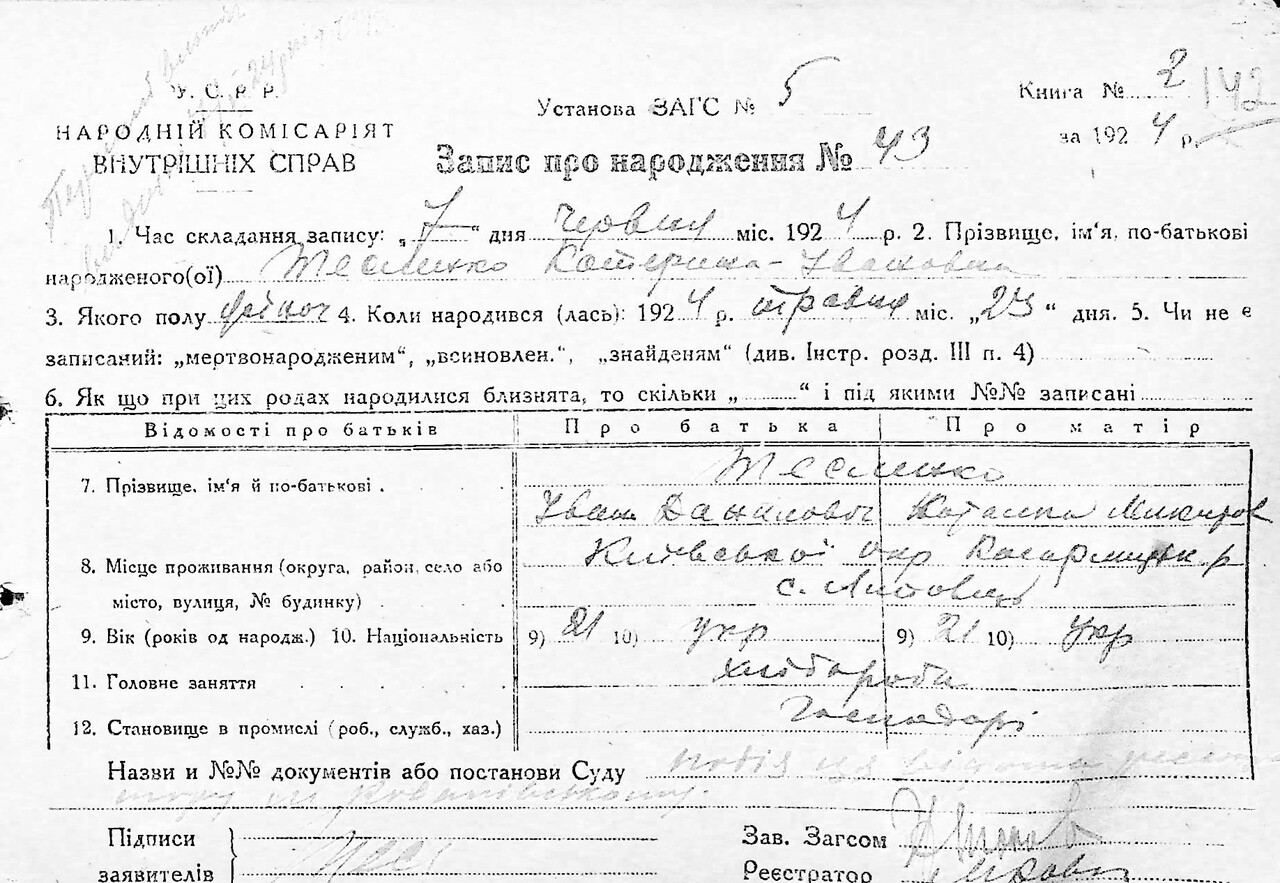 У. С. Р. Р.
НАРОДНІЙ КОМІСАРІЯТ
ВНУТРІШНІХ СПРАВ
Установа ЗАГС № 5
Книга № 2 142
за 1924 р.
Запис про народження № 43
1. Час складання запису: „7“ дня червня міс. 1924 р. 2. Прізвище, ім'я, по-батькові
народженого(ої) Тесленко Катерина Івановна
3. Якого полу жіноч 4. Коли народився (лась): 1924 р. травня міс. „23“ дня. 5. Чи не є
записаний: „мертвонародженим“, „всиновлен.“, „знайденям“ (див. Інстр. розд. III п. 4)
6. Як що при цих родах народилися близнята, то скільки „ “ і під якими №№ записані
Відомості про батьків Про батька Про матір
7. Прізвище, ім'я й по-батькові . Тесленко
Іван Данилович Наталка Микитов
8. Місце проживання (округа, район, село або Київської окр
місто, вулиця, № будинку) с. Липовець
9. Вік (років од народж.) 10. Національність 9) 21 10) укр 9) 21 10) укр
11. Головне заняття хлібороби
12. Становище в промислі (роб., служб., хаз.) Господарі
Назви и №№ документів або постанови Суду подія ця відома
Підписи
заявителів
Зав. Загсом
Реєстратор